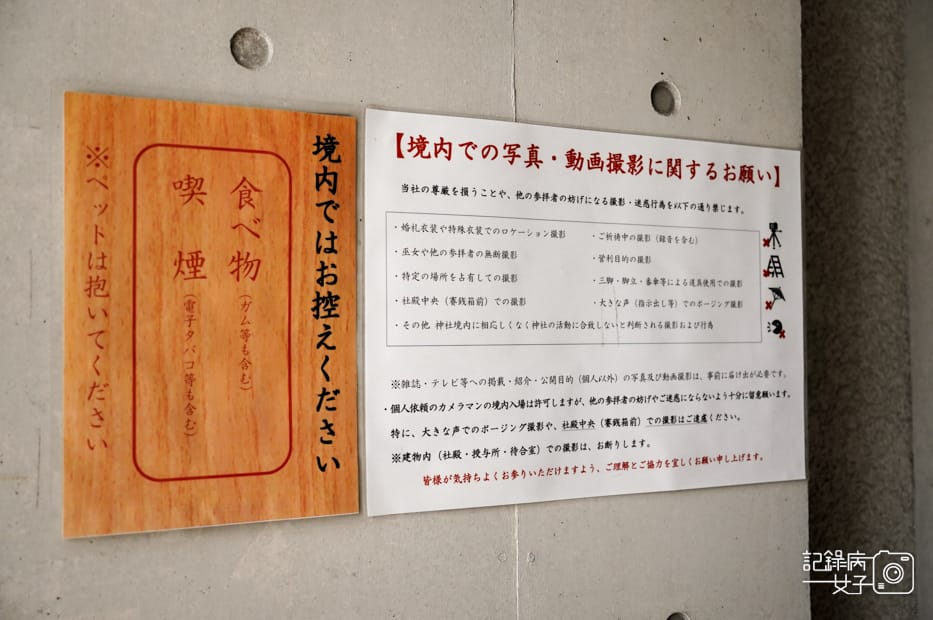 境内ではお控えください
食べ物(ガム等も含む)
喫煙(電子タバコ等も含む)
※ペットは抱いてください
【境内での写真・動画撮影に関するお願い】
当社の尊厳を損うことや、他の参拝者の妨げになる撮影・迷惑行為を以下の通り禁じます。
・婚礼衣装や特殊衣装でのロケーション撮影
・巫女や他の参拝者の無断撮影
・特定の場所を占有しての撮影
・社殿中央（賽銭箱前）での撮影
・ご祈祷中の撮影（録音を含む）
・営利目的の撮影
・三脚・脚立・番傘等による道具使用での撮影
・大きな声（指示出し等）でのポージング撮影
・その他 神社境内に相応しくなく神社の活動に合致しないと判断される撮影および行為
※雑誌・テレビ等への掲載・紹介・公開目的（個人以外）の写真及び動画撮影は、事前に届け出が必要です。
・個人依頼のカメラマンの境内入場は許可しますが、他の参拝者の妨げやご迷惑にならないよう十分に留意願います。
特に、大きな声でのポージング撮影や、社殿中央（賽銭箱前）での撮影はご遠慮ください。
※建物内（社殿・授与所・待合室）での撮影は、お断りします。
皆様が気持ちよくお参りいただけますよう、ご理解とご協力を宜しくお願い申し上げます。
記錄病
女子